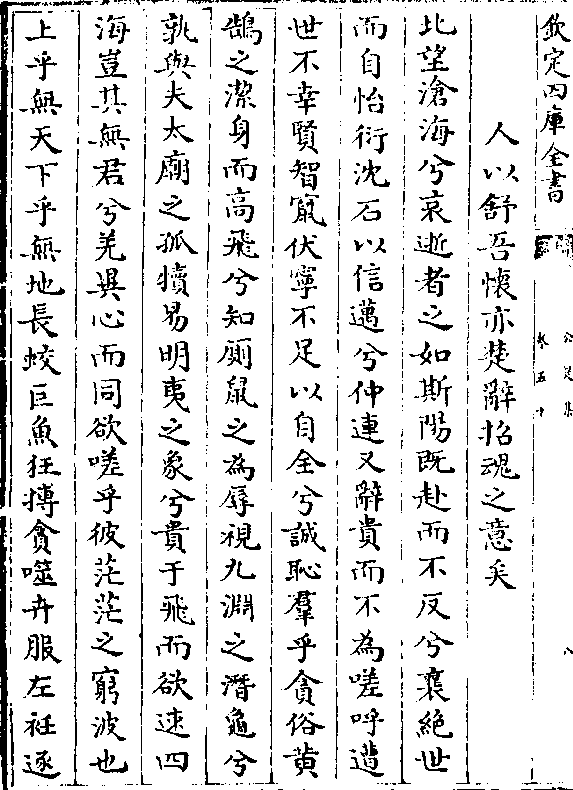 欽定四庫全書
公是集
卷五十
八
人以舒吾懷亦楚辭招魂之意矣
北望滄海兮哀逝者之如斯陽既赴而不反兮襄絶世
而自怡衍沈石以信邁兮仲連又辭貴而不為嗟呼遭
世不幸賢智竄伏寧不足以自全兮誠恥羣乎貪俗黄
鵠之潔身而高飛兮知厠鼠之為辱視九淵之潛龜兮
孰與夫太廟之孤犢易明夷之象兮貴于飛而欲速四
海豈其無君兮羌異心而同欲嗟乎彼茫茫之窮波也
上乎無天下乎無地長蛟巨魚狂摶貪噬卉服左衽逐